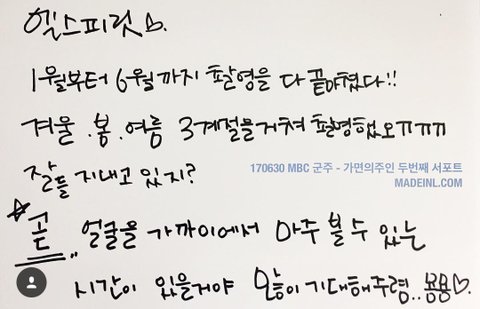 엘스피릿♡.
1월부터 6월까지 촬영을 다 끝마쳤다!!
겨울.봄.여름 3계절을거쳐 촬영했오ㄲㄲㄲ
잘들 지내고 있지?
170630 MBC 군주 - 가면의주인 두번째 서포트
MADEINL.COM
☆곧.. 얼굴을 가까이에서 아주 볼 수 있는
시간이 있을거야 많이 기대해주령.. 뿅뿅♡.